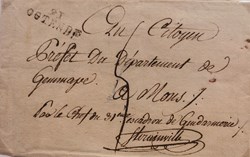 91
OSTENDE
Au Citoyen
Préfet du Département de
Gemmape
à Mons.
Par le Chef du escadron de Gendarmerie